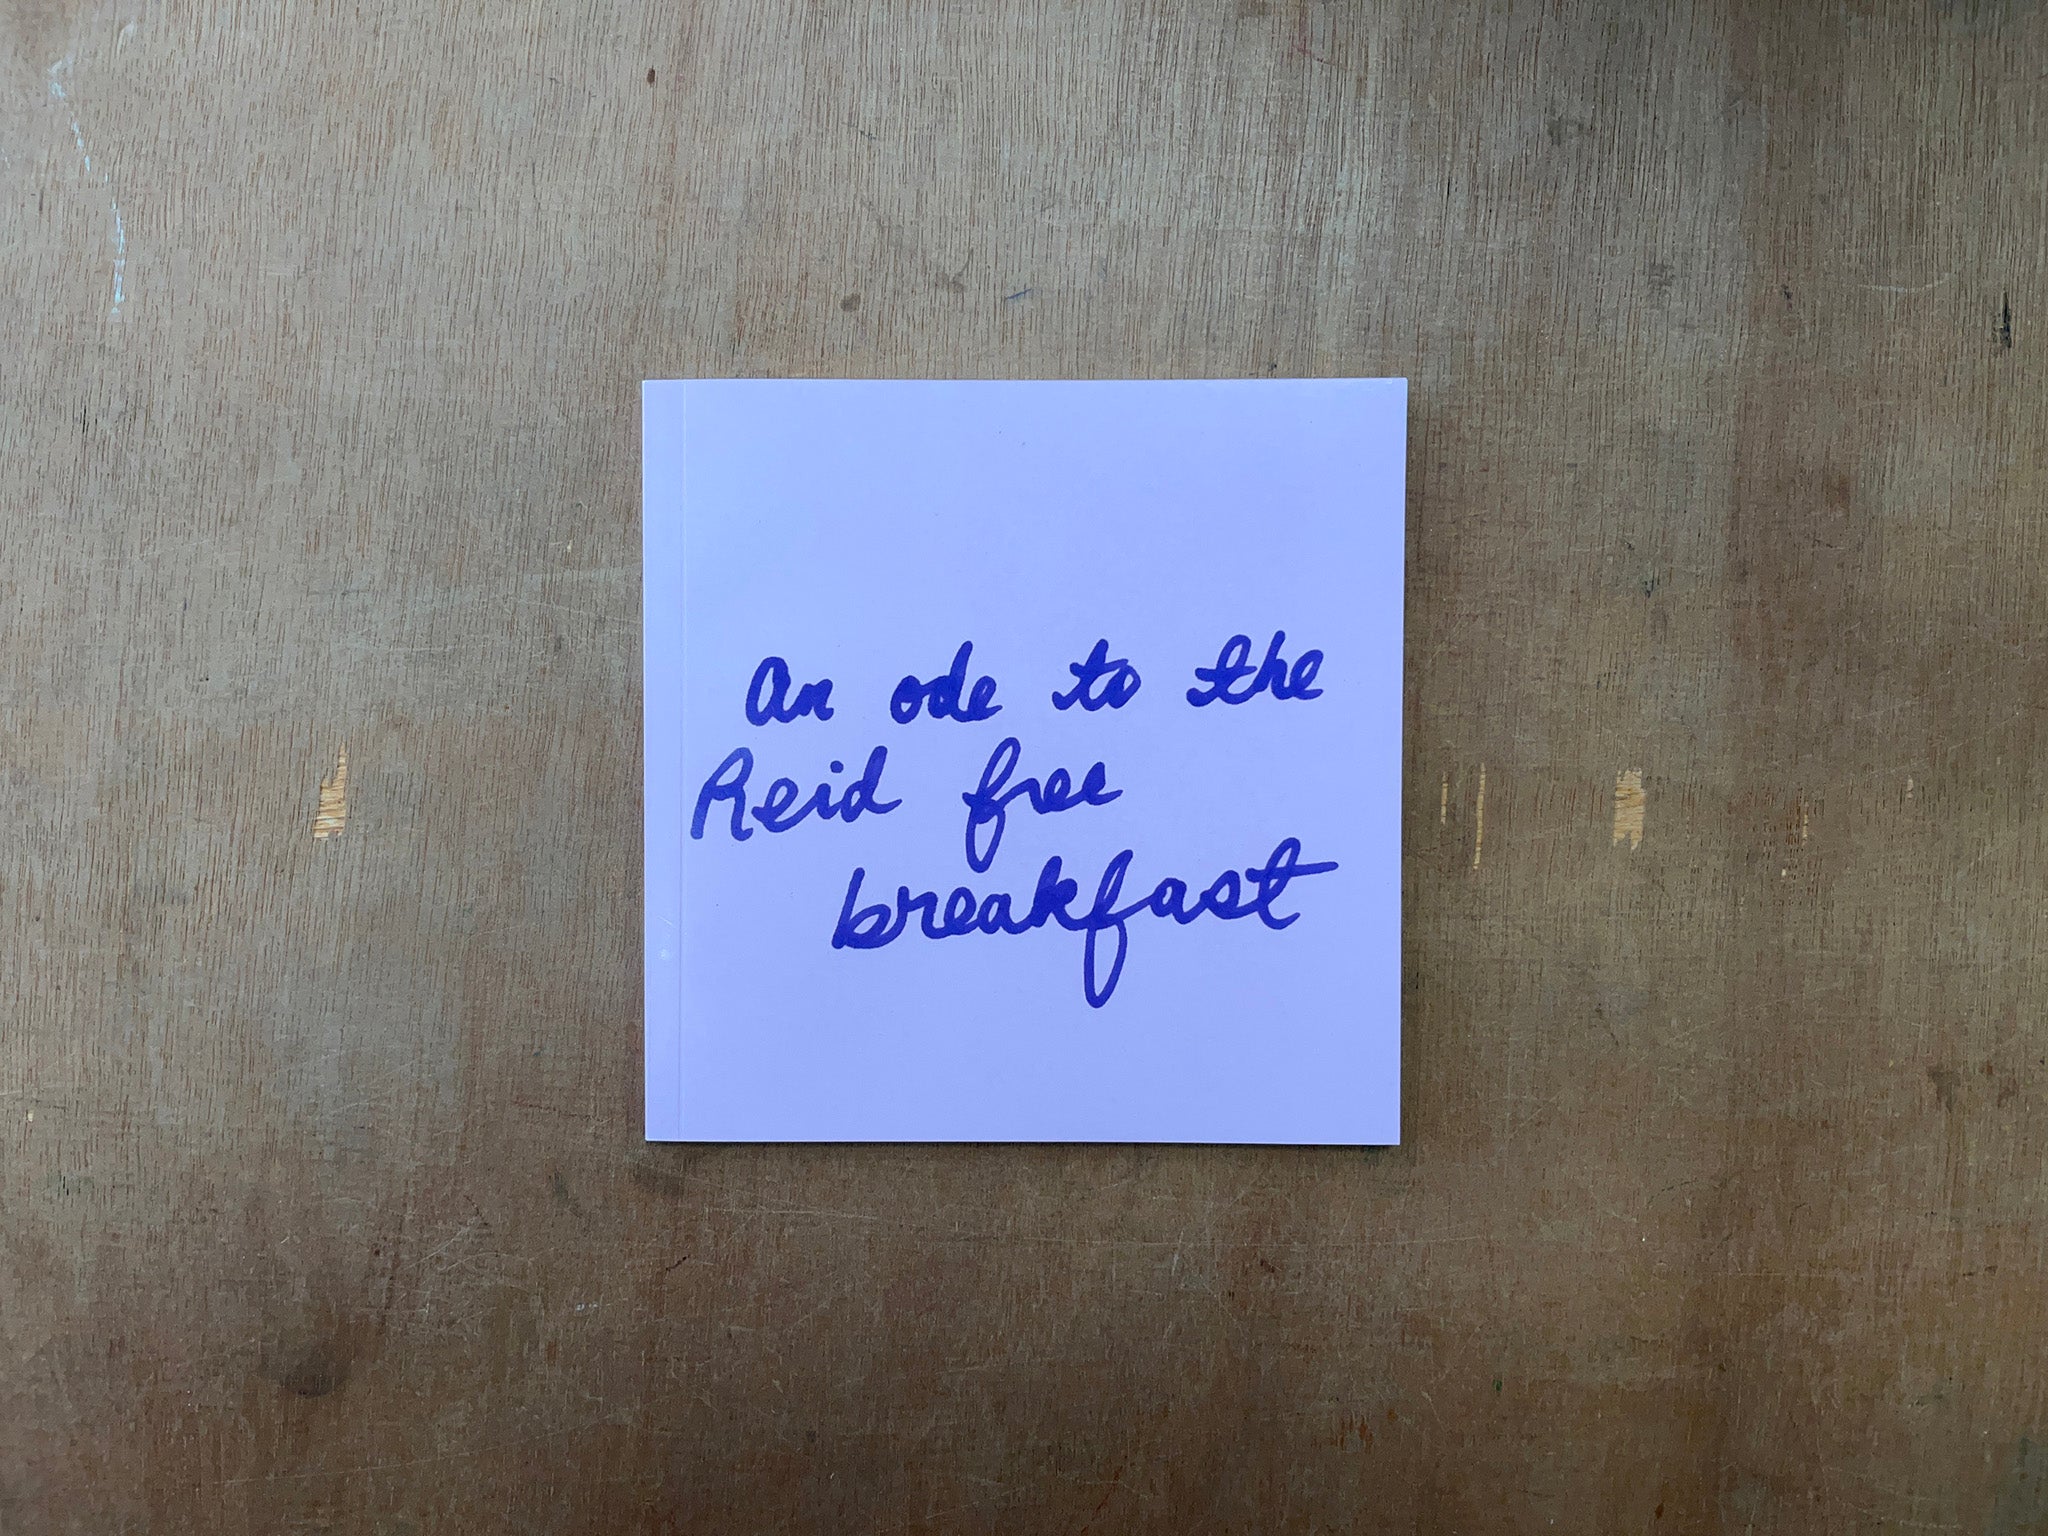 An ode to the
Reid free
breakfast